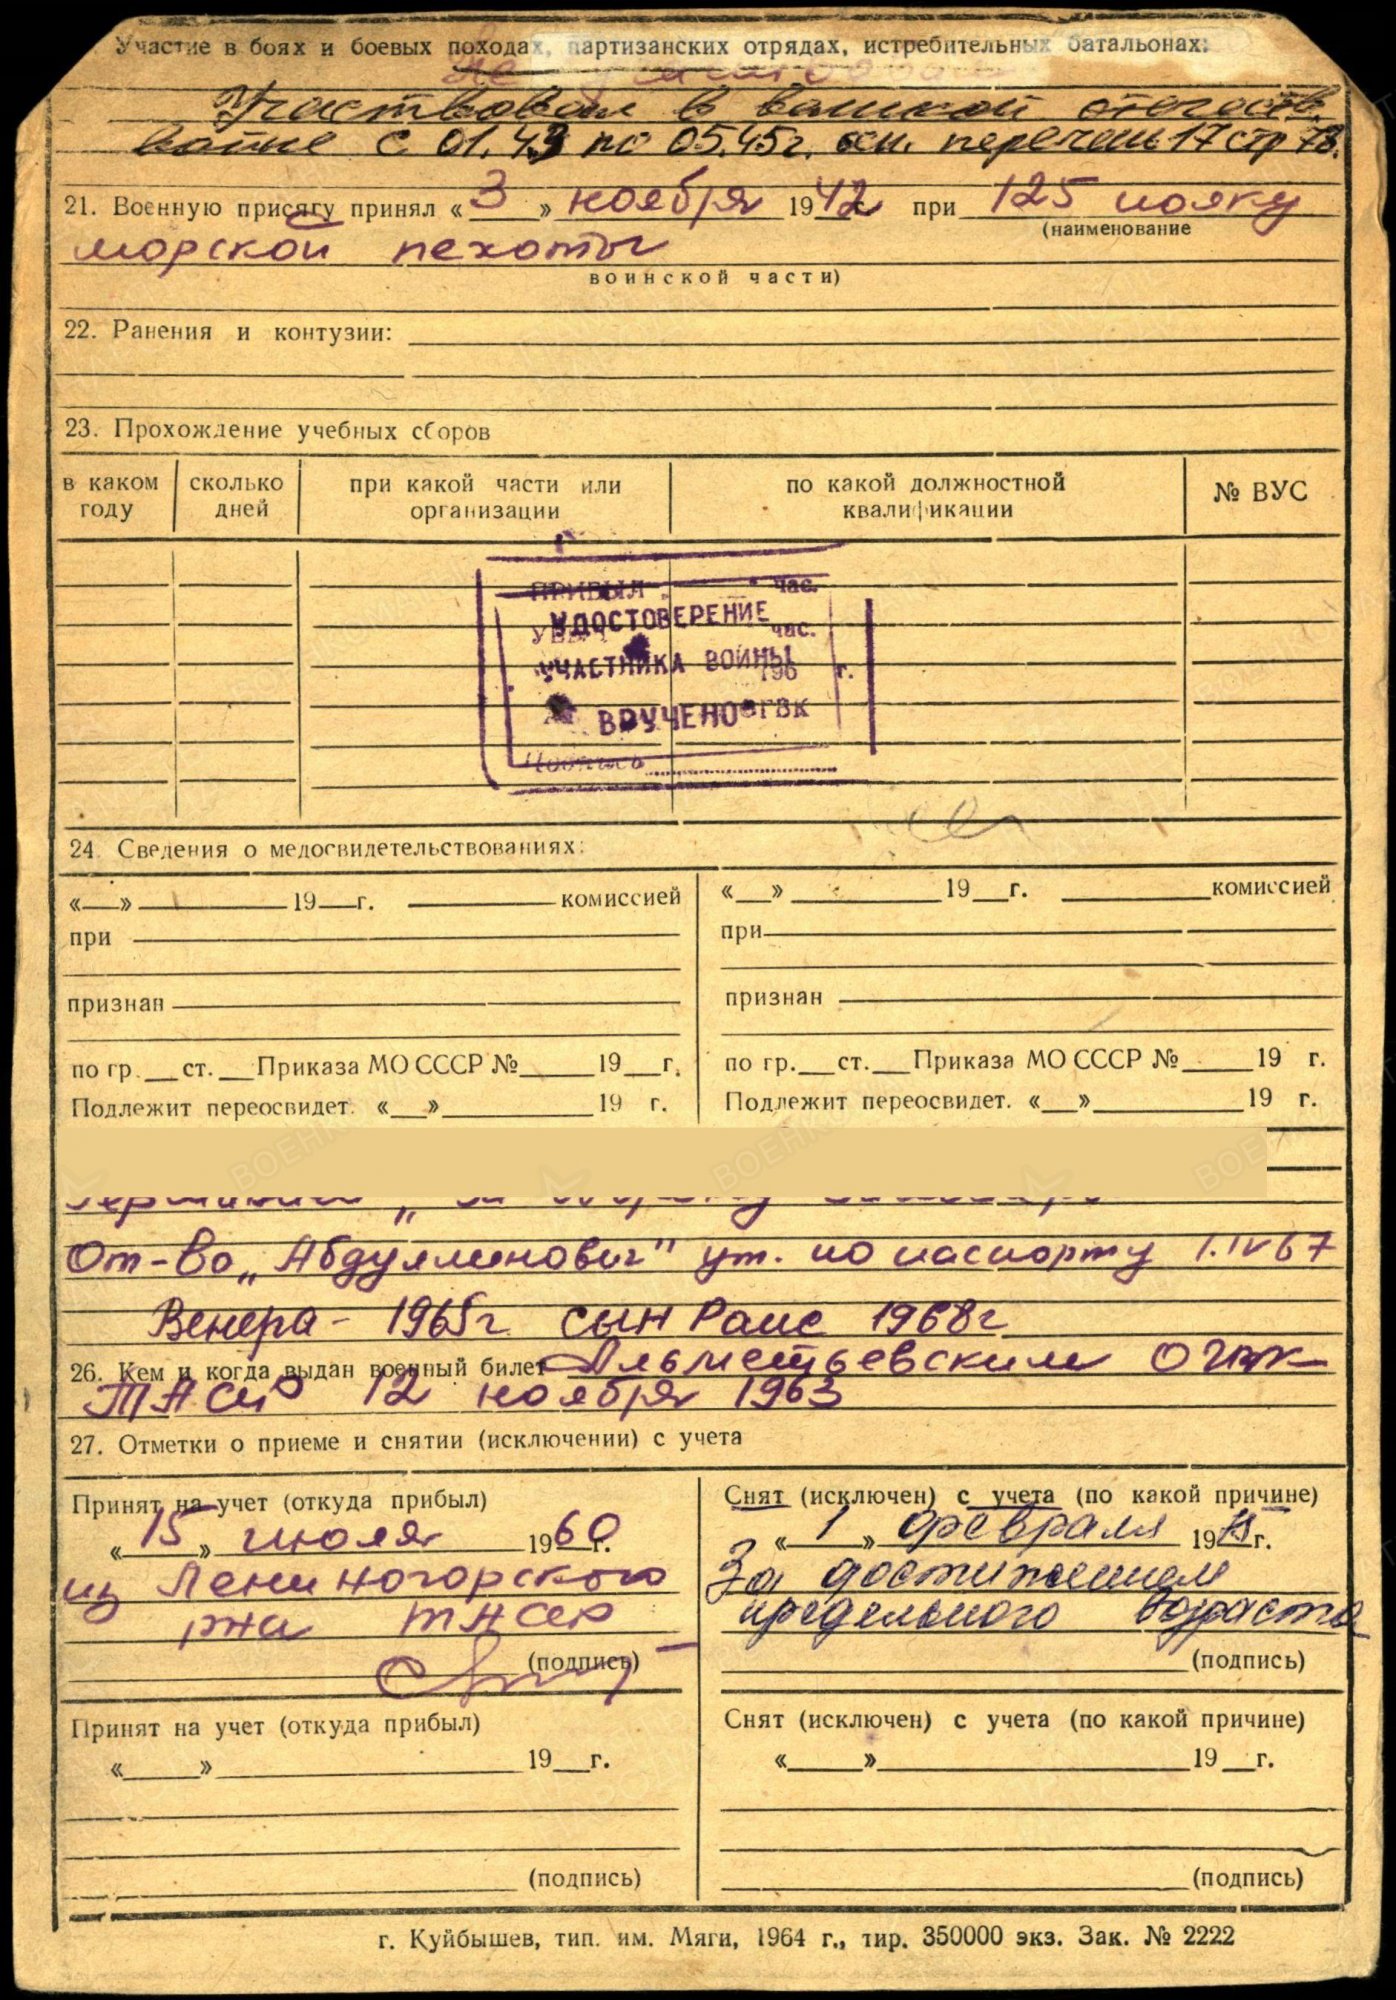 Участие в боях и боевых походах, партизанских отрядах, истребительных батальонах:
Не участвовал
Участвовал в великой отечеств.
войне с 01.43 по 05.45г. осн. перечень 17 стр 78.
21. Военную присягу принял « 3 » ноября 1942 г. при 125 полку
(наименование
морской пехоты
воинской части)
22. Ранения и контузии:
23. Прохождение учебных сборов
в каком году
сколько дней
при какой части или организации
по какой должностной квалификации
№ ВУС
ПРИБЫЛ час.
УДОСТОВЕРЕНИЕ
час.
УЧАСТНИКА ВОЙНЫ
196 г.
ВРУЧЕНО ГВК
Подпись
24. Сведения о медосвидетельствованиях:
«__» ____ 19__г. ____ комиссией
при
признан
по гр.__ст.__Приказа МО СССР №____19__г.
Подлежит переосвидет. «__»____19 г.
«__» ____ 19__г. ____ комиссией
при
признан
по гр.__ст.__Приказа МО СССР №____19 г.
Подлежит переосвидет. «__»____19 г.
От-во „Абдулминович" ут. по паспорту 1.IV 67
Венера - 1965г сын Раис 1968г
26. Кем и когда выдан военный билет Альметьевским ОГВК
ТАССР 12 ноября 1963
27. Отметки о приеме и снятии (исключении) с учета
Принят на учет (откуда прибыл)
« 15 » июля 1960 г.
из Лениногорского
рва ТАССР
(подпись)
Снят (исключен) с учета (по какой причине)
« 1 » февраля 19 г.
За достижением
предельного возраста
(подпись)
Принят на учет (откуда прибыл)
«____»____ 19__г.
(подпись)
Снят (исключен) с учета (по какой причине)
«____»____ 19__г.
(подпись)
г. Куйбышев, тип. им. Мяги, 1964 г., тир. 350000 экз. Зак. № 2222